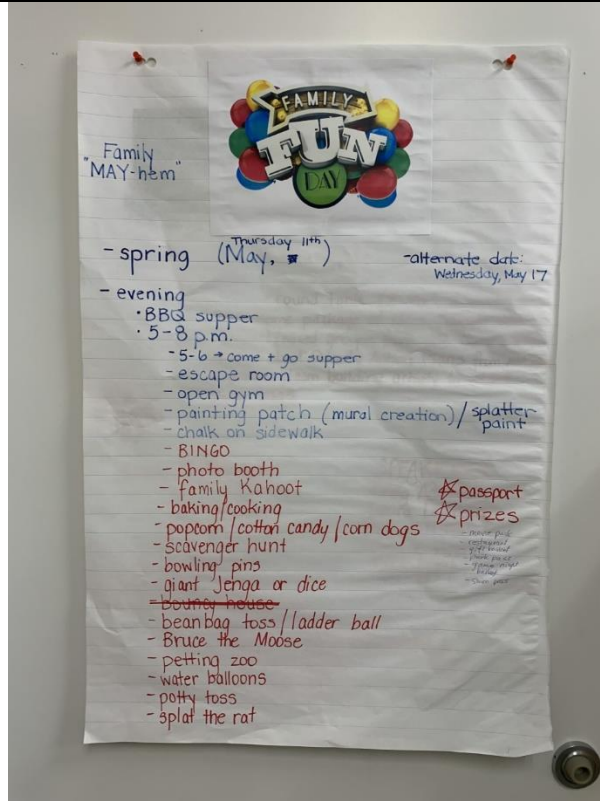 FAMILY
FUN
DAY
Family
"MAY-hem"
Thursday 11th
- spring (May, )
- alternate date:
Wednesday, May 17
- evening
• BBQ supper
• 5-8 p.m.
- 5-6 → come + go supper
- escape room
- open gym
- painting patch (mural creation) / splatter
paint
- chalk on sidewalk
- BINGO
- photo booth
- family Kahoot
- baking/cooking
- popcorn / cotton candy / corn dogs
- scavenger hunt
- bowling pins
- giant Jenga or dice
- bouncy house
- bean bag toss / ladder ball
- Bruce the Moose
- petting zoo
- water balloons
- potty toss
- splat the rat
☆ passport
☆ prizes
- movie pack
- restaurant
- gift
- game night